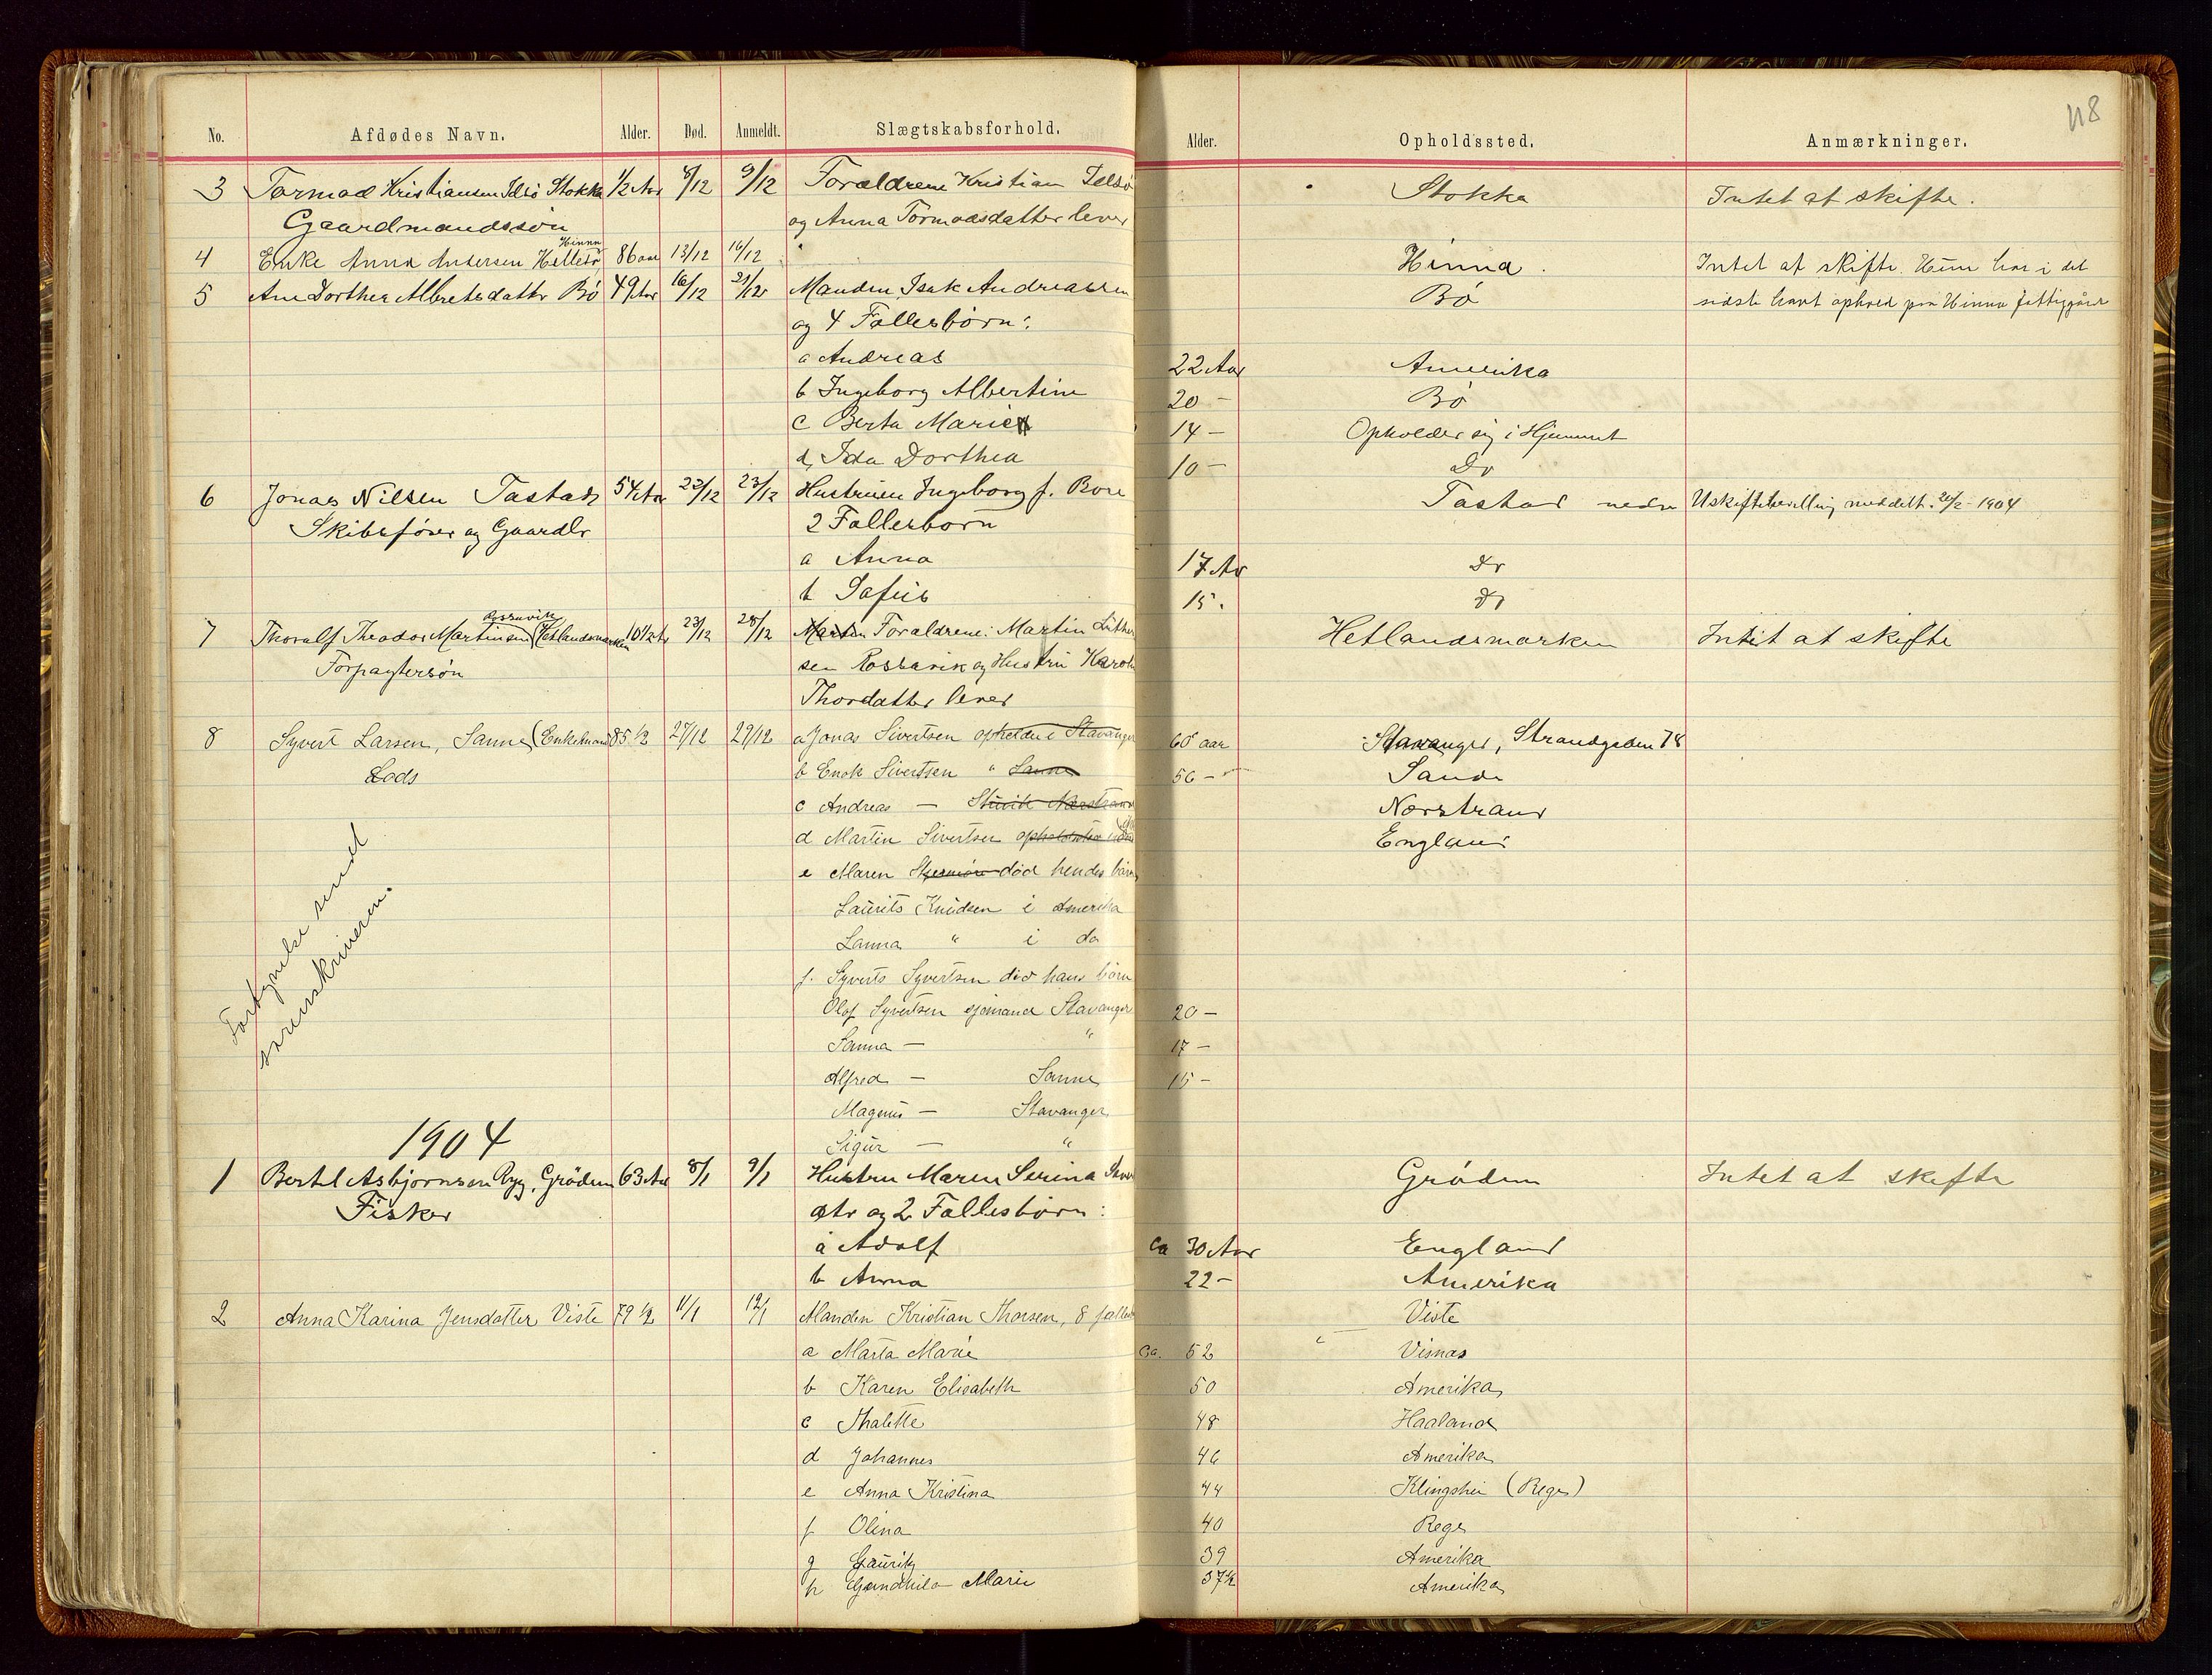 118
No. Afdødes Navn. Alder. Død. Anmeldt. Slægtskabsforhold. Alder. Opholdssted. Anmærkninger.
3 Tormod Kristiansen Idsö Stokka 1/2 Aar 8/12 9/12 Forældrene Kristian Idsö Stokka Intet at skifte.
Gaardmandssön og Anna Tormodsdatter lever
Hinna
4 Enke Anna Andersen Hillesø 86 aar 13/12 16/12 Hinna. Intet at skifte. Hun har i det
5 Ane Dorthea Albretsdattr Bö 49 Aar 16/12 21/12 Manden Isak Andreassen Bö sidste havt ophold paa Hinna fattiggård
og 4 Fællesbörn:
a Andreas 22 Aar Amerika
b Ingeborg Albertine 20 - Bö
c Berta Marie 14 - Opholder sig i Hjemmet
d, Ida Dorthea 10 - Do
6 Jonas Nilsen Tastad 54 Aar 22/12 23/12 Hustruen Ingeborg f. Bore Tastad nedre Uskiftebevilling meddelt 20/2 - 1904
Skibsfører og Gaardbr 2 Fællesbörn
a Anna 17 Ar Do
b Sofie 15. Do
7 Thoralf Theodor Martinsen Rossavik (Hetlandsmarken 10 1/2 Ar 23/12 28/12 Forældrene: Martin Luther Hetlandsmarken Intet at skifte
Forpaktersön sen Rossavik og Hustru Karol
Thordatter lever
8 Syvert Larsen, Sanne (Enkemand 85 1/2 27/12 29/12 a Jonas Sivertsen opholder i Stavanger 60 aar Stavanger, Strandgaden 78
Lods b Enok Sivertsen " Sanne 56 - Sande
c Andreas — Nærstrand Nærstrand
d Martin Sivertsen England
e Maren död hendes börn
Laurits Knudsen i Amerika
Lanna " i do
f. Syverts Syvertsen död hans börn
Olaf Syvertsen sjömand Stavanger 20 -
Sanna — " 17 -
Alfred — Sanne 15 -
Magnus — Stavanger
Sigur — "
Fortegnelse sendt
sorenskriveren.
1904
1 Bertel Asbjornsen Ryg, Grödem 63 Aar 8/1 9/1 Hustru Maren Serina Grödem Intet at skifte
Fisker dtr og 2 Fællesbörn:
a Adolf ca 30 Aar England
b Anna 22 - Amerika
2 Anna Karina Jensdatter Viste 79 1/2 11/1 12/1 Manden Kristian Thorsen, 8 fælles Viste
a Marta Marie ca. 52 Visnas
b Karen Elisabeth 50 Amerika
c Thalette 48 Haaland
d Johannes 46 Amerika
e Anna Kristina 44 Klingshei (Rege)
f Olina 40 Rege
g Gaurits 39 Amerika
h Gundhild Marie 37 1/2 Amerika